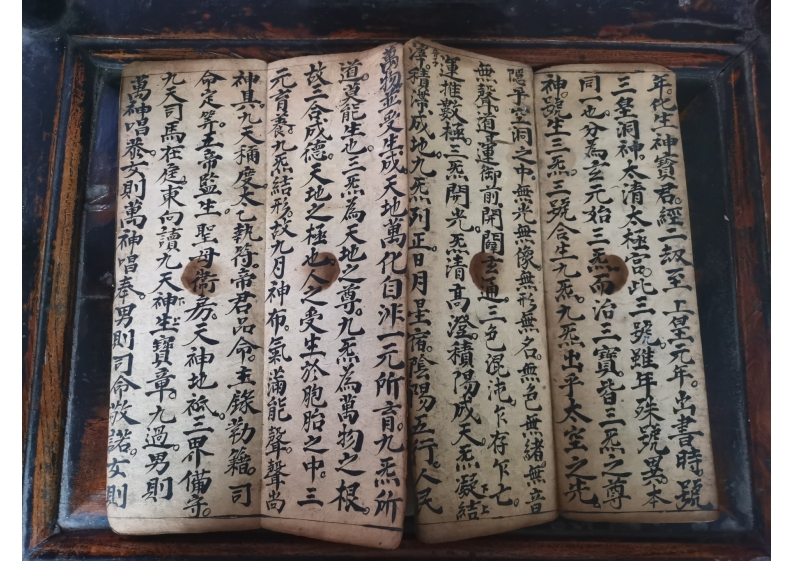 年。化生神寶君。經一級至上皇元年。出書時。號
三皇洞神。太清太極宮。此三號。雖年殊號異。本
同一也。分為玄元始三炁而治三寶。皆三炁之尊
神。號生三炁。三號合生九炁。九炁出乎太空之先。
隱乎空洞之中。無光無像無形無名無色無緒無音
無聲。道運御前開闢玄通。三色混沌。乍存乍亡。
運推數極。三炁開光。炁清高澄積陽成天。炁凝結
滓。積滯成地。九炁列正日月星宿陰陽五行。人民
萬物並受生成天地萬化自非一元所育。九炁所
道。莫能生也。三炁為天地之尊。九炁為萬物之根。
故三合成德。天地之極也。人之受生於胞胎之中。三
元育養。九炁結形。故九月神布。氣滿能聲。聲尚
神具。九天稱慶。太乙執符。帝君品命。主錄勒籍。司
命定筭。五帝監生。聖母衛房。天神地祇。三界備守。
九天司馬在庭。東向讀九天神生寶章。九過。男則
萬神唱恭。女則萬神唱奉。男則司命敬諾。女則